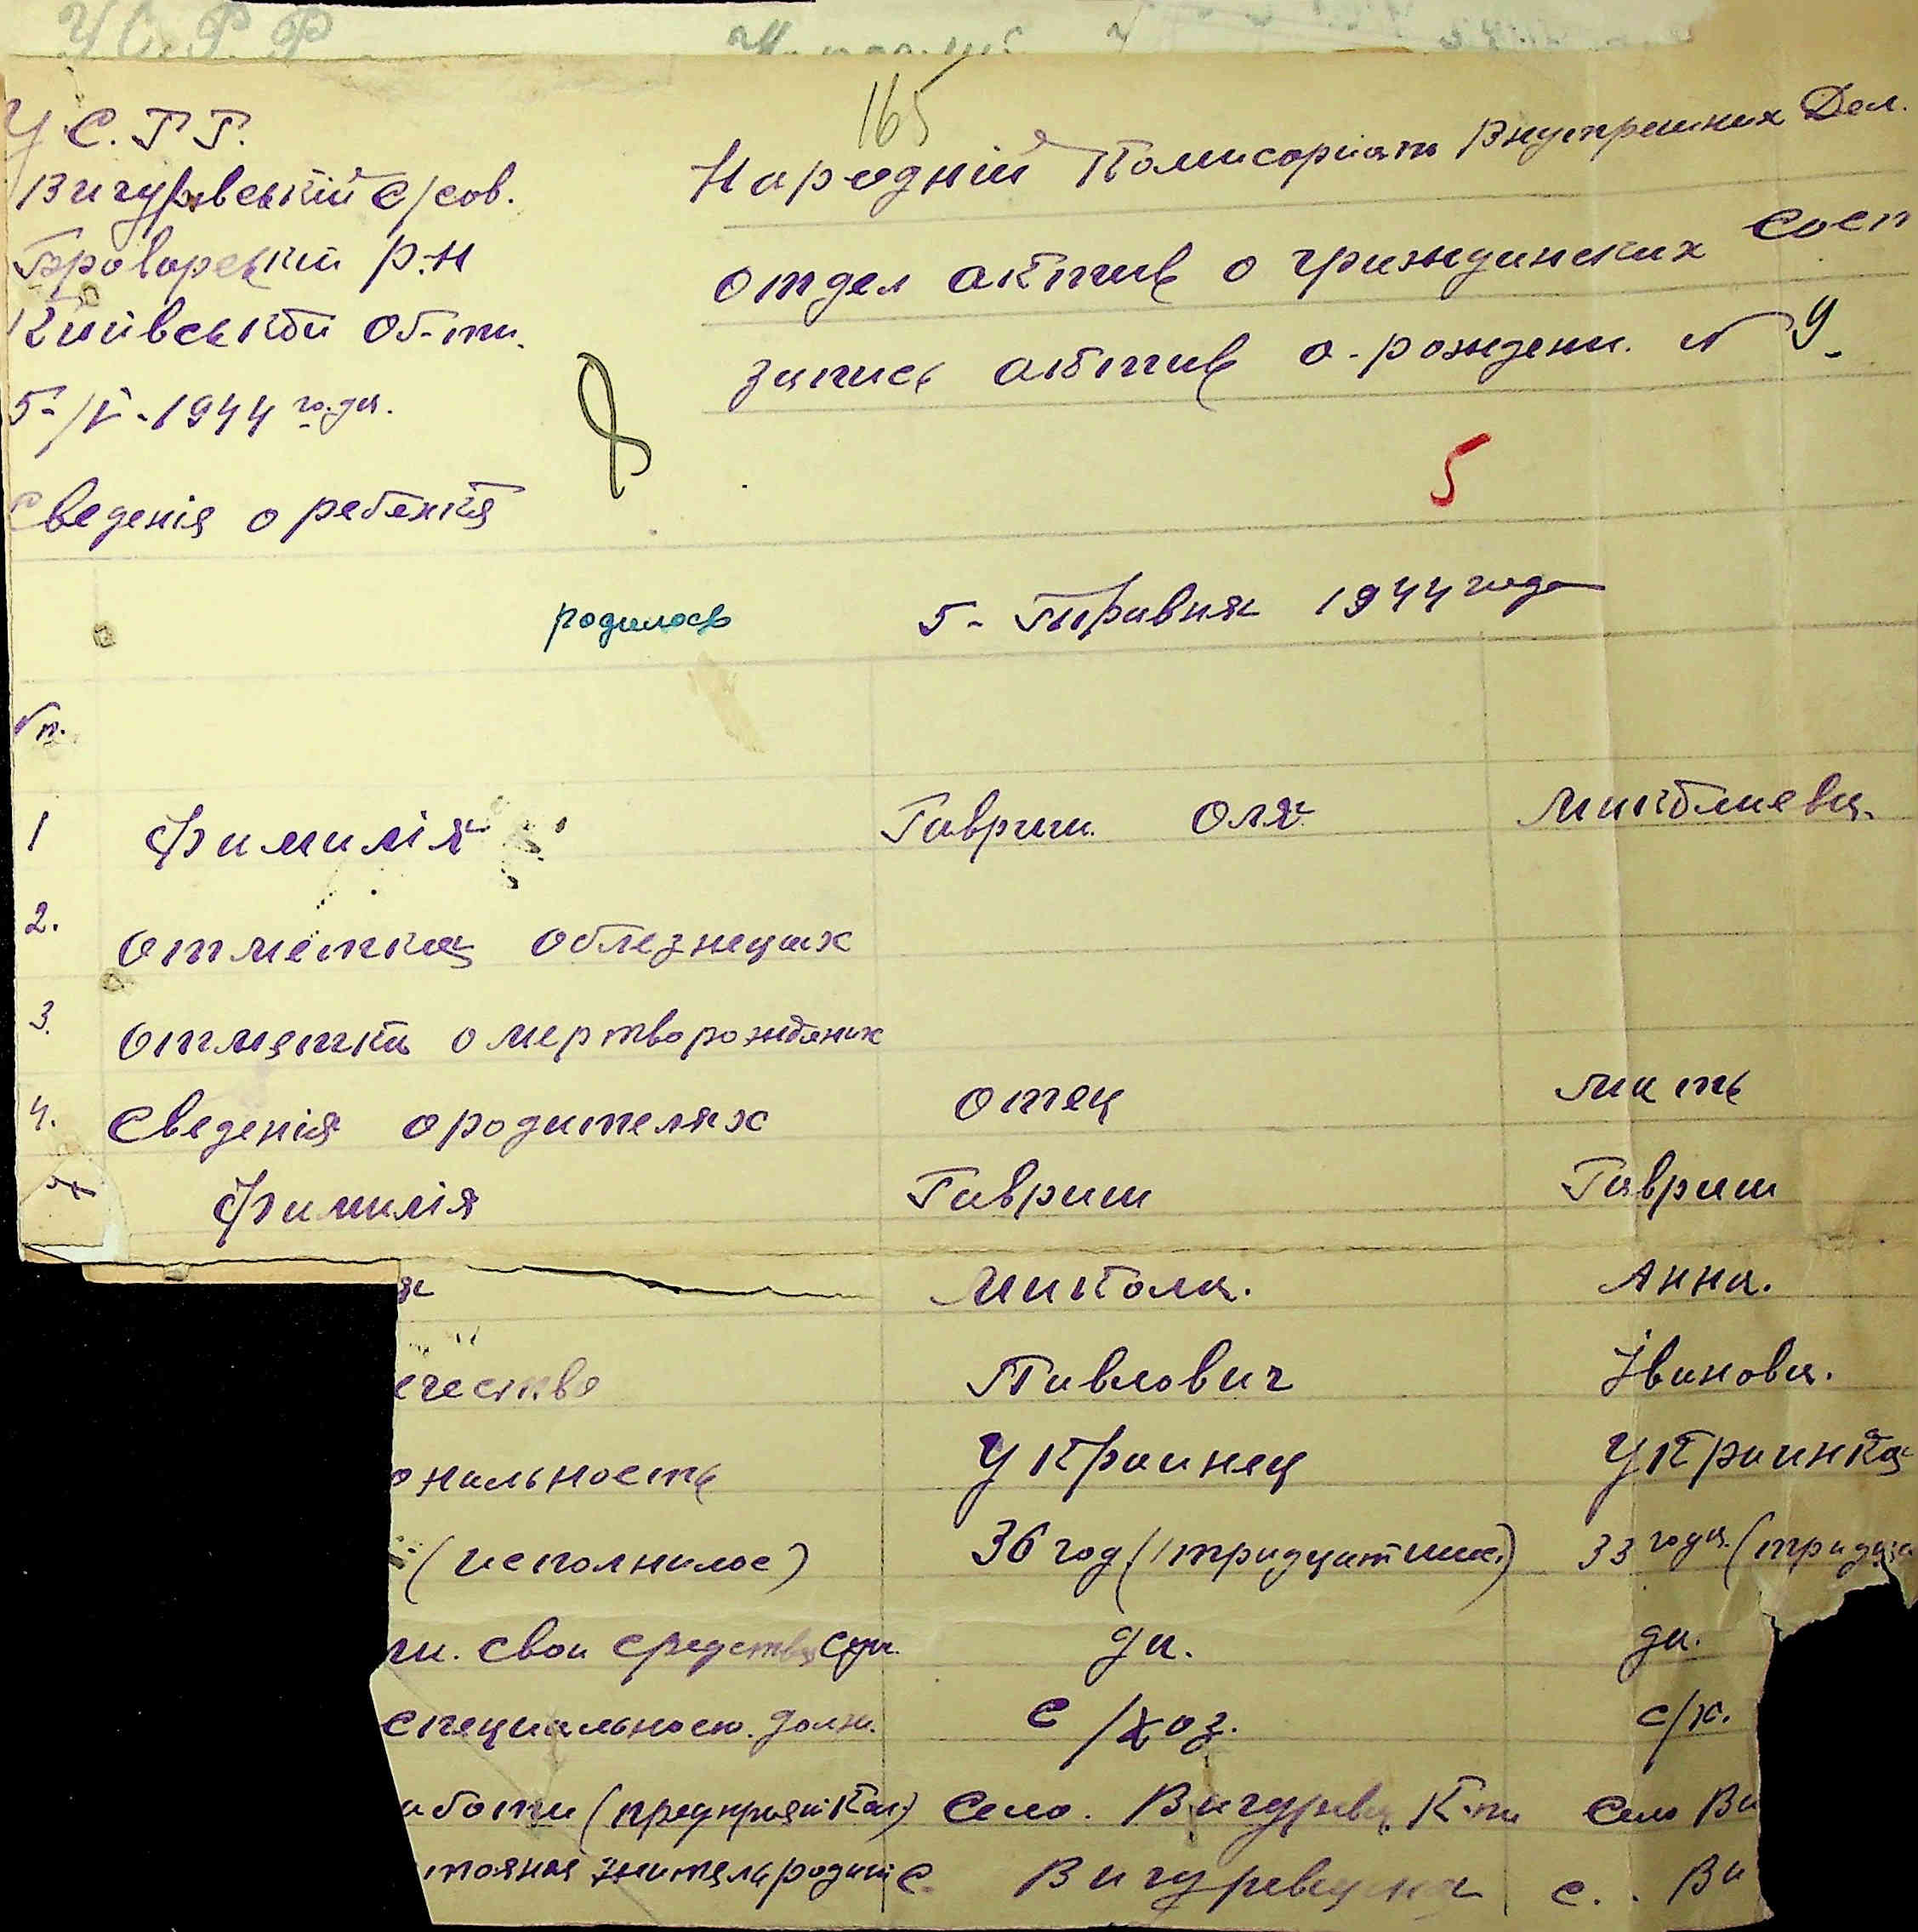 165
У.С.Р.Р.
Вигурівський с/сов.
Броварський р-н
Київськой об-ти.
5-/V-1944 года.
Народній Комисориат Внутрених Дел.
отдел актив о гражданских сост
запись актив о-рождени. № 9.
5
Сведенія о ребенкя
родилось 5-Травня 1944 года
№п.
1 Фамилія Гавриш. Оля Миколаевна.
2. отметка облезнецах
3. отмятка о мертворождених
4. Сведенія о родителях отец мать
5 Фамилія Гавриш Гавриш
я Микола. Анна.
ечество Павлович Іванова.
ональность Украинец Украинка
(исполнилос) 36 год (тридцат шис.) 33 года. (тридца
ги. свои средства да. да.
специальносю. долж. с/хоз. с/х.
аботи (предприят Село. Село Ви
тояноя жителя родит с. с. Ви